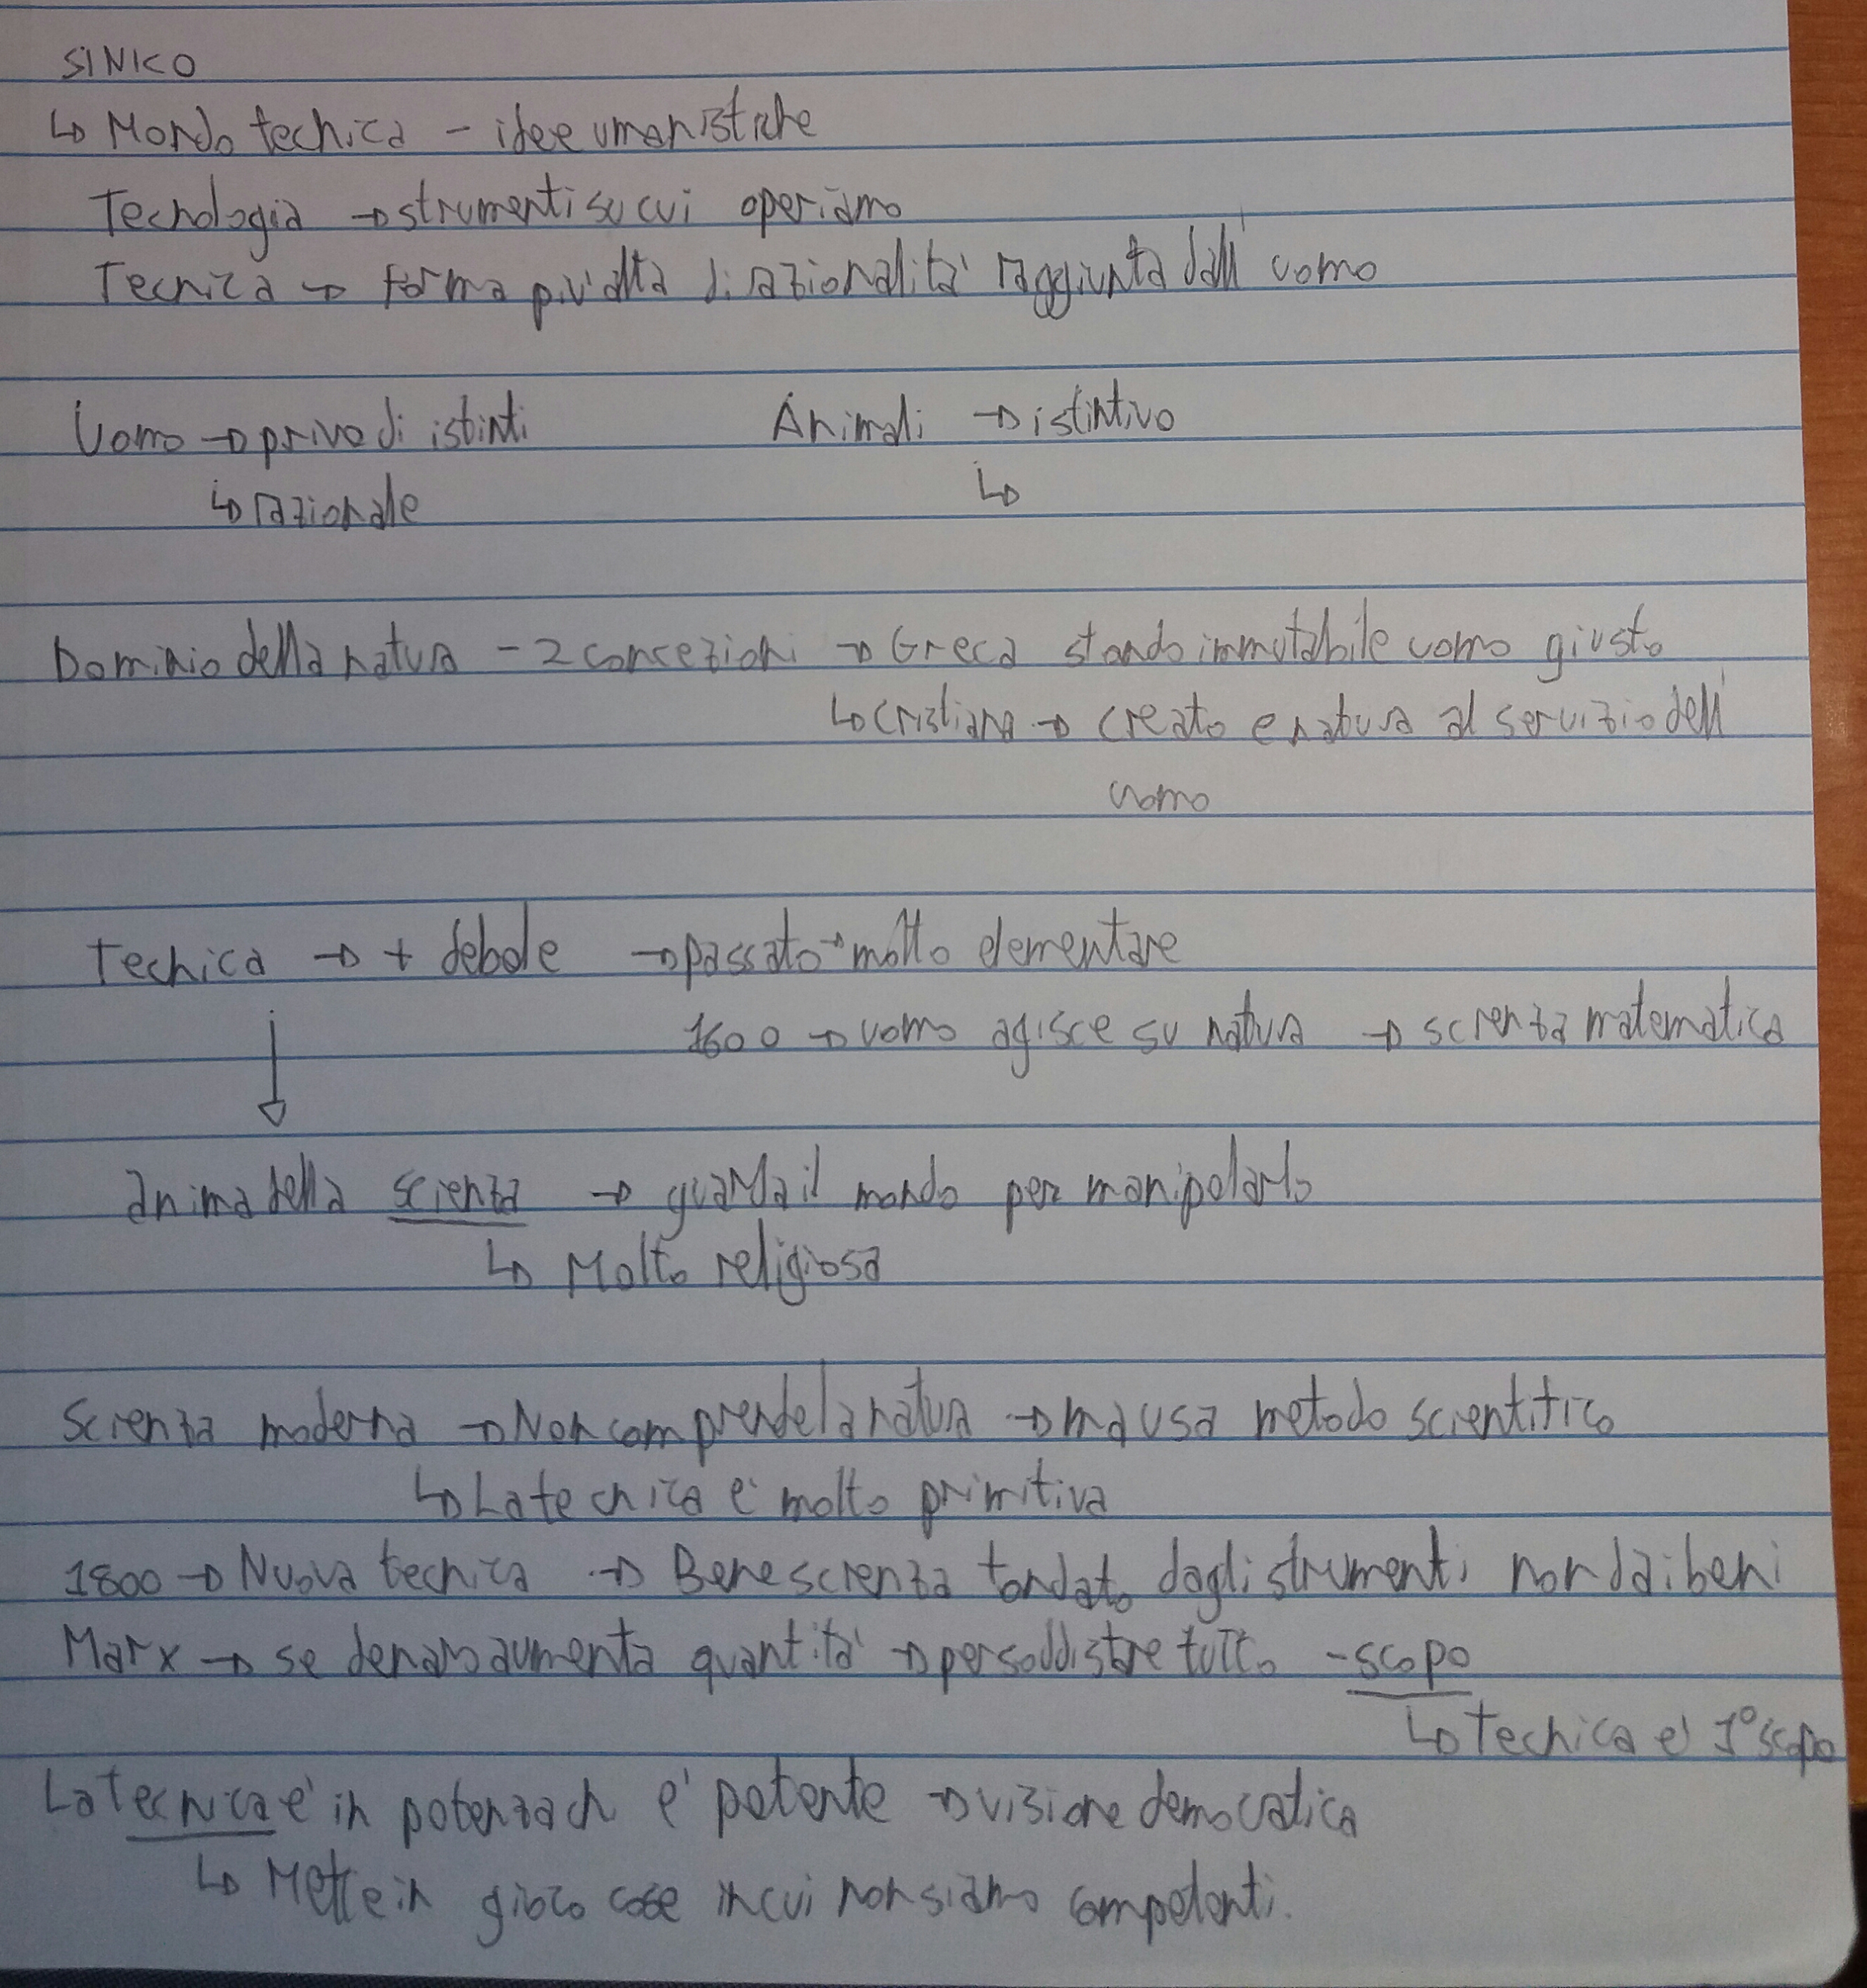 SINICO
↳ Mondo technica - idee umanistiche
Tecnologia → strumenti su cui operiamo
Tecnica → forma più alta di razionalità raggiunta dall' uomo
Uomo → privo di istinti Animali → istintivo
↳ razionale ↳
Dominio della natura - 2 concezioni → Greca stando immutabile uomo giusto
↳ cristiana → creato e natura al servizio dell'
uomo
Technica → + debole → passato → molto elementare
1600 → uomo agisce su natura → scienza matematica
↓
anima della scienza → guarda il mondo per manipolarlo
↳ Molto religiosa
Scienza moderna → Non comprende la natura → ma usa metodo scientifico
↳ La technica è molto primitiva
1800 → Nuova tecnica → Bene scienza fondato dagli strumenti non dai beni
Marx → se denaro aumenta quantità → per soddisfare tutto - scopo
↳ technica è 1° scopo
La tecnica è in potenza ch è potente → visione democratica
↳ Mette in gioco cose in cui non siamo competenti.